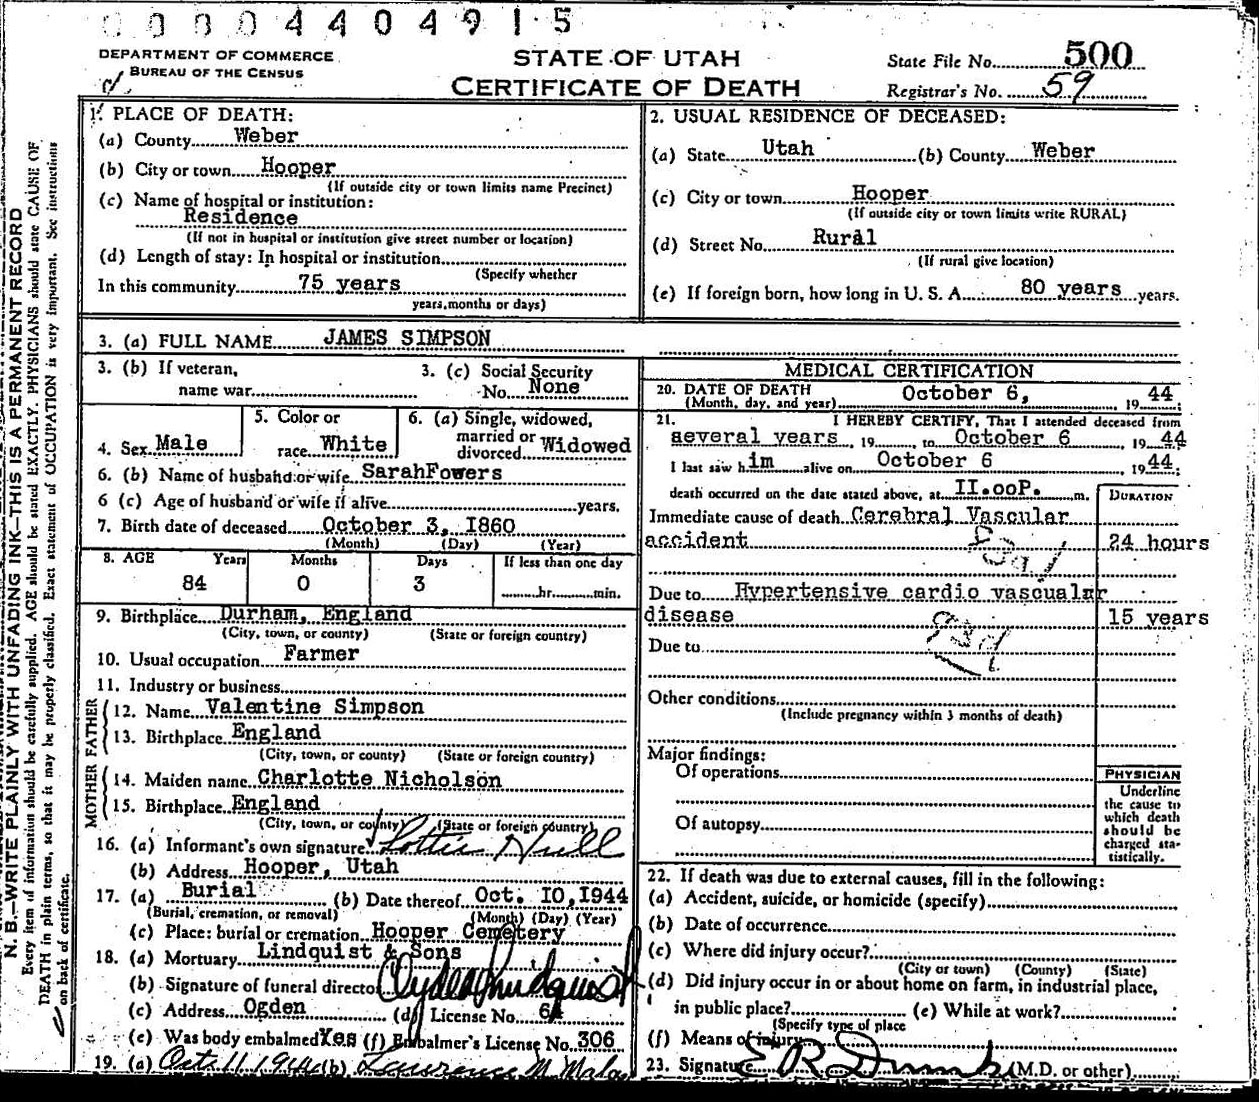 0000440491 5
DEPARTMENT OF COMMERCE
BUREAU OF THE CENSUS
STATE OF UTAH
CERTIFICATE OF DEATH
State File No. 500
Registrar's No. 59
N. B.—WRITE PLAINLY WITH UNFADING INK—THIS IS A PERMANENT RECORD
Every item of information should be carefully supplied. AGE should be stated EXACTLY. PHYSICIANS should state CAUSE OF
DEATH in plain terms, so that it may be properly classified. Exact statement of OCCUPATION is very important. See instructions
on back of certificate.
1. PLACE OF DEATH:
(a) County Weber
(b) City or town Hooper
(If outside city or town limits name Precinct)
(c) Name of hospital or institution:
Residence
(If not in hospital or institution give street number or location)
(d) Length of stay: In hospital or institution
(Specify whether
In this community 75 years
years, months or days)
2. USUAL RESIDENCE OF DECEASED:
(a) State Utah (b) County Weber
(c) City or town Hooper
(If outside city or town limits write RURAL)
(d) Street No. Rural
(If rural give location)
(e) If foreign born, how long in U. S. A. 80 years years.
3. (a) FULL NAME JAMES SIMPSON
3. (b) If veteran,
name war
3. (c) Social Security
No. None
4. Sex Male
5. Color or
race White
6. (a) Single, widowed,
married or
divorced Widowed
6. (b) Name of husband or wife SarahFowers
6 (c) Age of husband or wife if alive years.
7. Birth date of deceased October 3, I860
(Month) (Day) (Year)
8. AGE Years Months Days If less than one day
84 0 3 hr. min.
9. Birthplace Durham, England
(City, town, or county) (State or foreign country)
10. Usual occupation Farmer
11. Industry or business
FATHER
12. Name Valentine Simpson
13. Birthplace England
(City, town, or county) (State or foreign country)
MOTHER
14. Maiden name Charlotte Nicholson
15. Birthplace England
(City, town, or county) (State or foreign country)
16. (a) Informant's own signature Lottie Hull
(b) Address Hooper, Utah
17. (a) Burial (b) Date thereof Oct. IO,1944
(Burial, cremation, or removal) (Month) (Day) (Year)
(c) Place: burial or cremation Hooper Cemetery
18. (a) Mortuary Lindquist & Sons
(b) Signature of funeral director Clyde Lindquist
(c) Address Ogden (d) License No. 64
(e) Was body embalmed Yes (f) Embalmer's License No. 306
19. (a) Oct. 11, 1944 (b) Lawrence M. Malan
MEDICAL CERTIFICATION
20. DATE OF DEATH October 6, 19 44
(Month, day, and year)
21. I HEREBY CERTIFY, That I attended deceased from
several years, 19 , to October 6 19 44
I last saw him alive on October 6 19 44;
death occurred on the date stated above, at II.ooP. m.
DURATION
Immediate cause of death Cerebral Vascular
accident 24 hours
Due to Hypertensive cardio vascular
disease 15 years
Due to
Other conditions
(Include pregnancy within 3 months of death)
Major findings:
Of operations
Of autopsy
PHYSICIAN
Underline
the cause to
which death
should be
charged sta-
tistically.
22. If death was due to external causes, fill in the following:
(a) Accident, suicide, or homicide (specify)
(b) Date of occurrence
(c) Where did injury occur?
(City or town) (County) (State)
(d) Did injury occur in or about home on farm, in industrial place,
in public place? (e) While at work?
(Specify type of place
(f) Means of injury
23. Signature E R Dumke (M.D. or other)